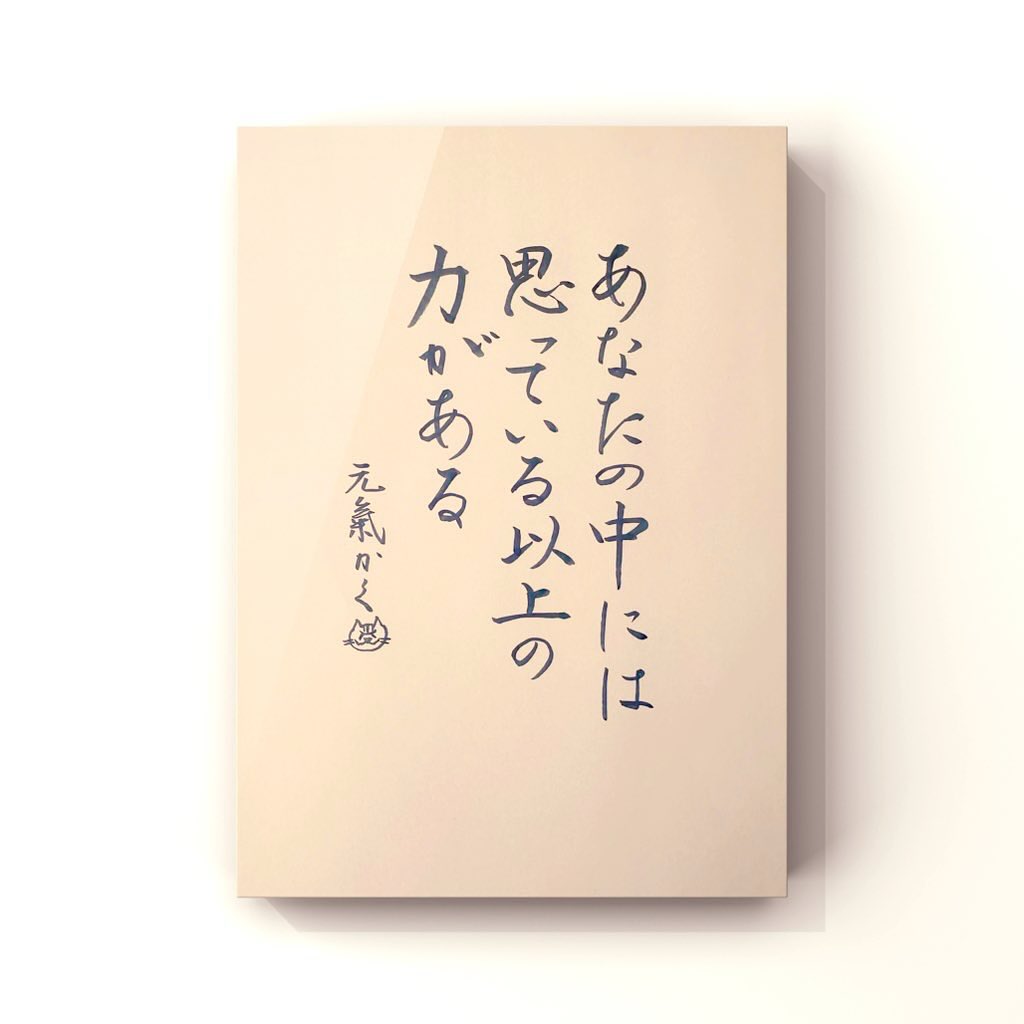 あなたの中には
思っている以上の
力がある
元氣かく